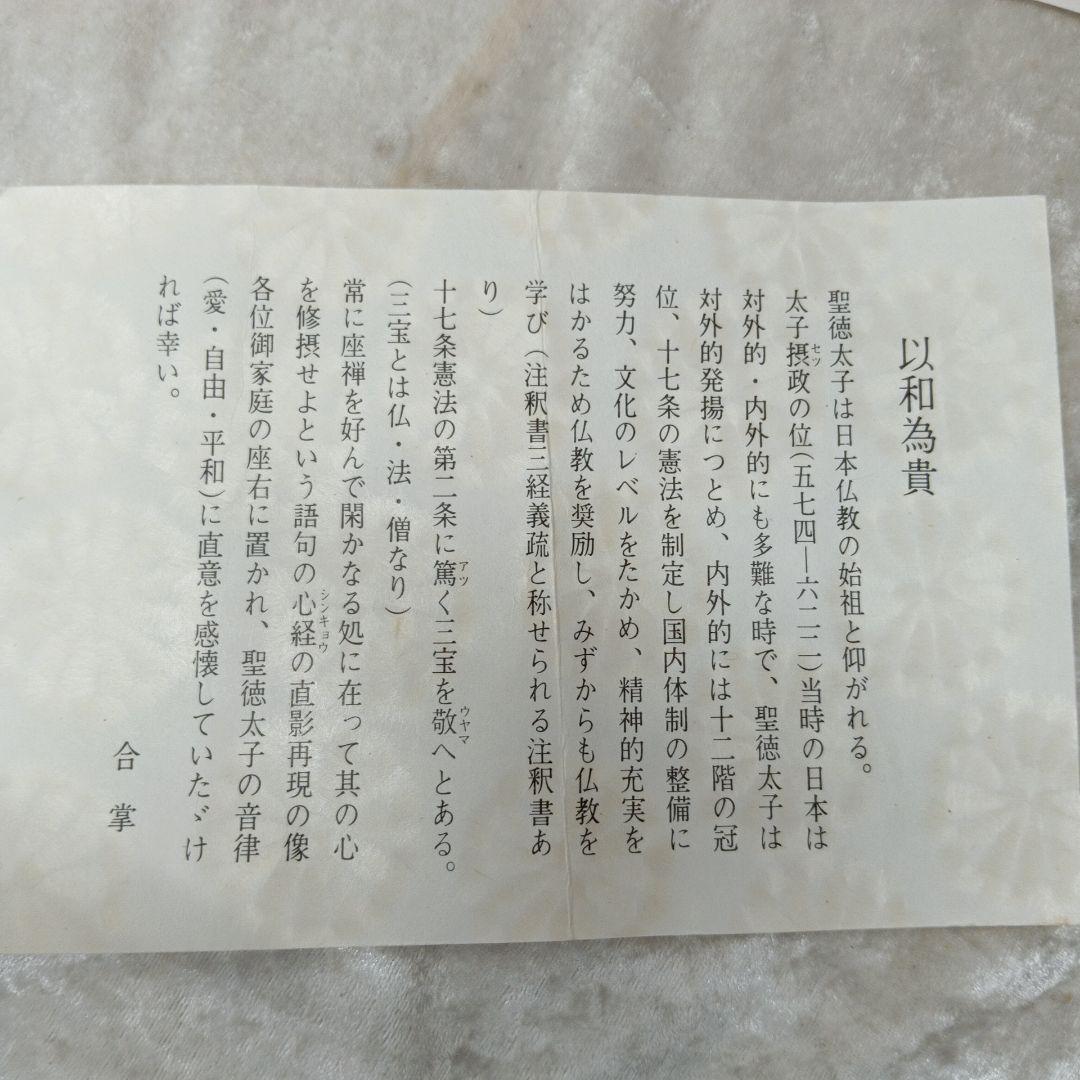 以和為貴
聖徳太子は日本仏教の始祖と仰がれる。
太子摂政の位(五七四―六二二)当時の日本は
セツ
対外的・内外的にも多難な時で、聖徳太子は
対外的発揚につとめ、内外的には十二階の冠
位、十七条の憲法を制定し国内体制の整備に
努力、文化のレベルをたかめ、精神的充実を
はかるため仏教を奨励し、みずからも仏教を
学び(注釈書三経義疏と称せられる注釈書あ
り)
十七条憲法の第二条に篤く三宝を敬へとある。
アツ
ウヤマ
(三宝とは仏・法・僧なり)
常に座禅を好んで閑かなる処に在って其の心
を修摂せよという語句の心経の直影再現の像
シンキョウ
各位御家庭の座右に置かれ、聖徳太子の音律
(愛・自由・平和)に直意を感懐していたゞけ
れば幸い。
合掌